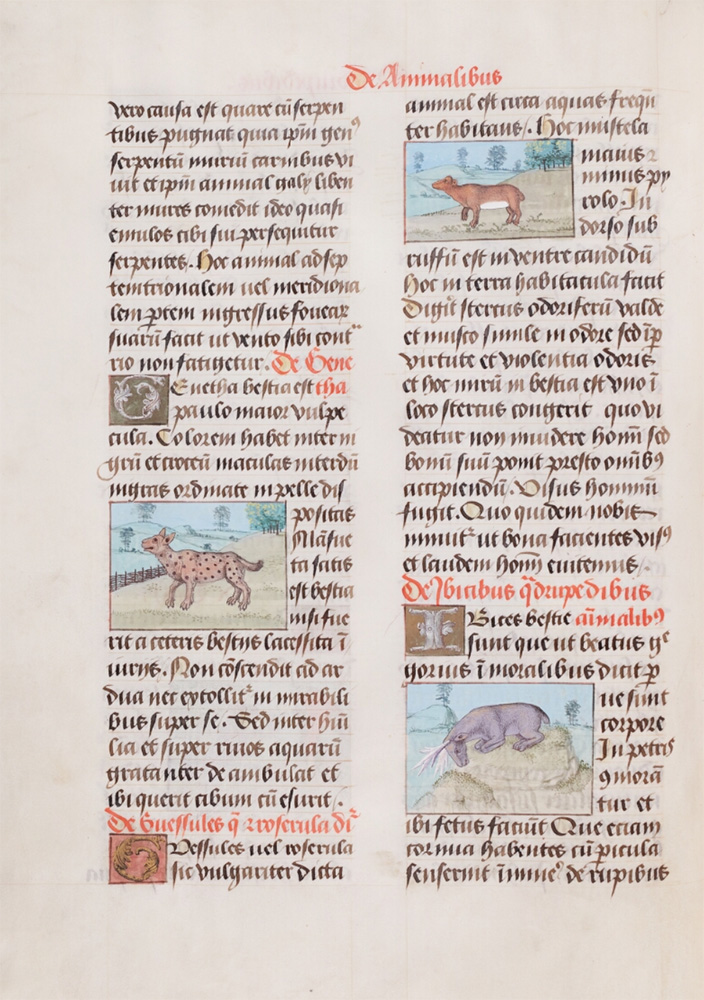 De Animalibus
vero causa est quare cū serpen
tibus pugnat quia ipm̄ genꝰ
serpentū muriū carnibus vi
uit et ipm̄ animal galy liben
ter mures comedit ideo quasi
emulos cibi sui persequitur
serpentes. Hoc animal ad sep
temtrionalem uel meridiona
lem ꝑtem ingressus foueaꝝ
suarū facit ut vento sibi cont
rio non fatigetur. De Gene
Genetha bestia est tha
paulo maior vulpe
cula. Colorem habet inter ni
grū et croceū maculas interdū
nigras ordinate in pelle dis
positas
Māsue
ta satis
est bestia
nisi fue
rit a ceteris bestijs lacessita ī
iurijs. Non cōscendit ad ar
dua nec extollit᷑ in mirabili
bus super se. Sed inter hūi
lia et super riuos aquarū
gratanter deambulat et
ibi querit cibum cū esurit.
De Guessules q̄ ⁊ roserula dr̄
Guessules uel roserula
sic vulgariter dicta
animal est circa aquas frequē
ter habitans. Hoc mustela
maius ⁊
minus py
rolo. In
dorso sub
ruffū est in ventre candidū
Hoc in terra habitacula facit
Digit stercus odoriferū valde
et musco simile in odore sed ip̄
virtute et violentia odoris
et hoc mirū in bestia est vno ī
loco stercus congerit quo vi
deatur non inuidere homī sed
bonū suū ponit presto omībꝰ
accipiendū. Visus hominū
fugit. Quo quidem nobis
innuit᷑ ut bona facientes visꝰ
et laudem homī euitemus.
De Ibicibus q̄drupedibus
Ibices bestie aīmalibꝰ
sunt que ut beatus gͤ
gorius ī moralibus dicit ꝑ
ue sunt
corpore
In petris
ꝯmorā
tur et
ibi fetus faciūt Que eciam
cornua habentes cū ꝑicula
senserint īmineꝰ de rupibus